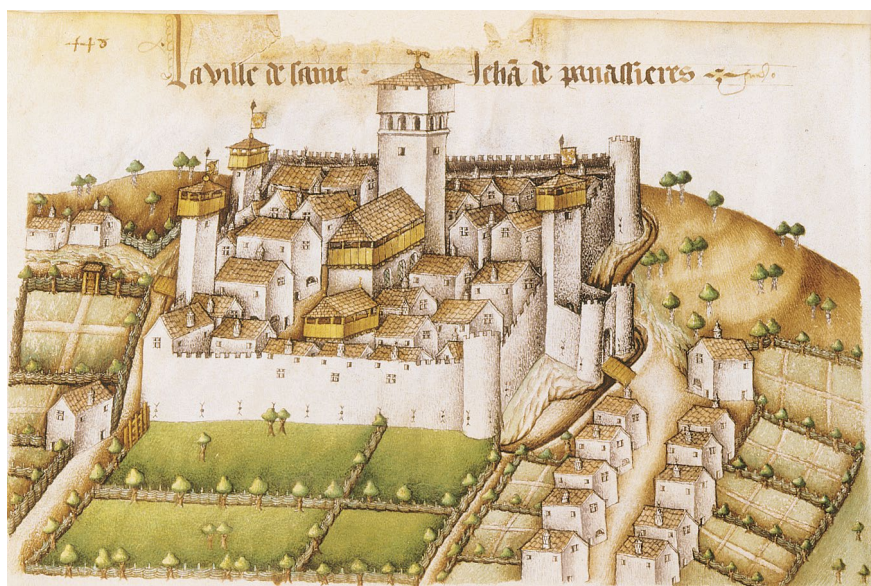 La ville de saint Jehã de panassieres